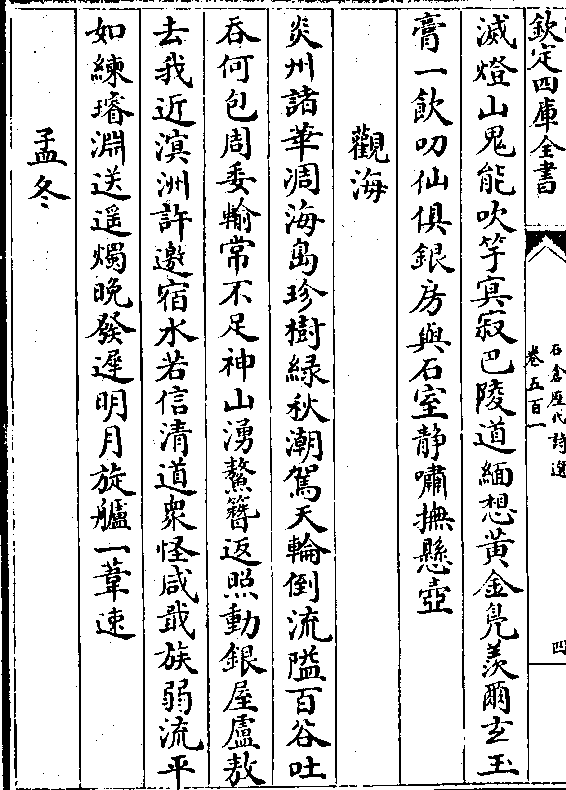 欽定四庫全書
石倉歷代詩選
卷五百一
四
滅燈山鬼能吹竽寞寂巴陵道緬想黃金鳧羨爾玄玉
膏一飲叨仙俱銀房與石室静嘯撫懸壺
觀海
炎州諸華凋海島珍樹緑秋潮駕天輪倒流隘百谷吐
吞何包周委輸常不足神山湧鰲簪返照動銀屋盧敖
去我近溟洲許邀宿水若信清道衆怪咸戢族弱流平
如練璿淵送遥燭晚發遲明月旋艫一葦速
孟冬